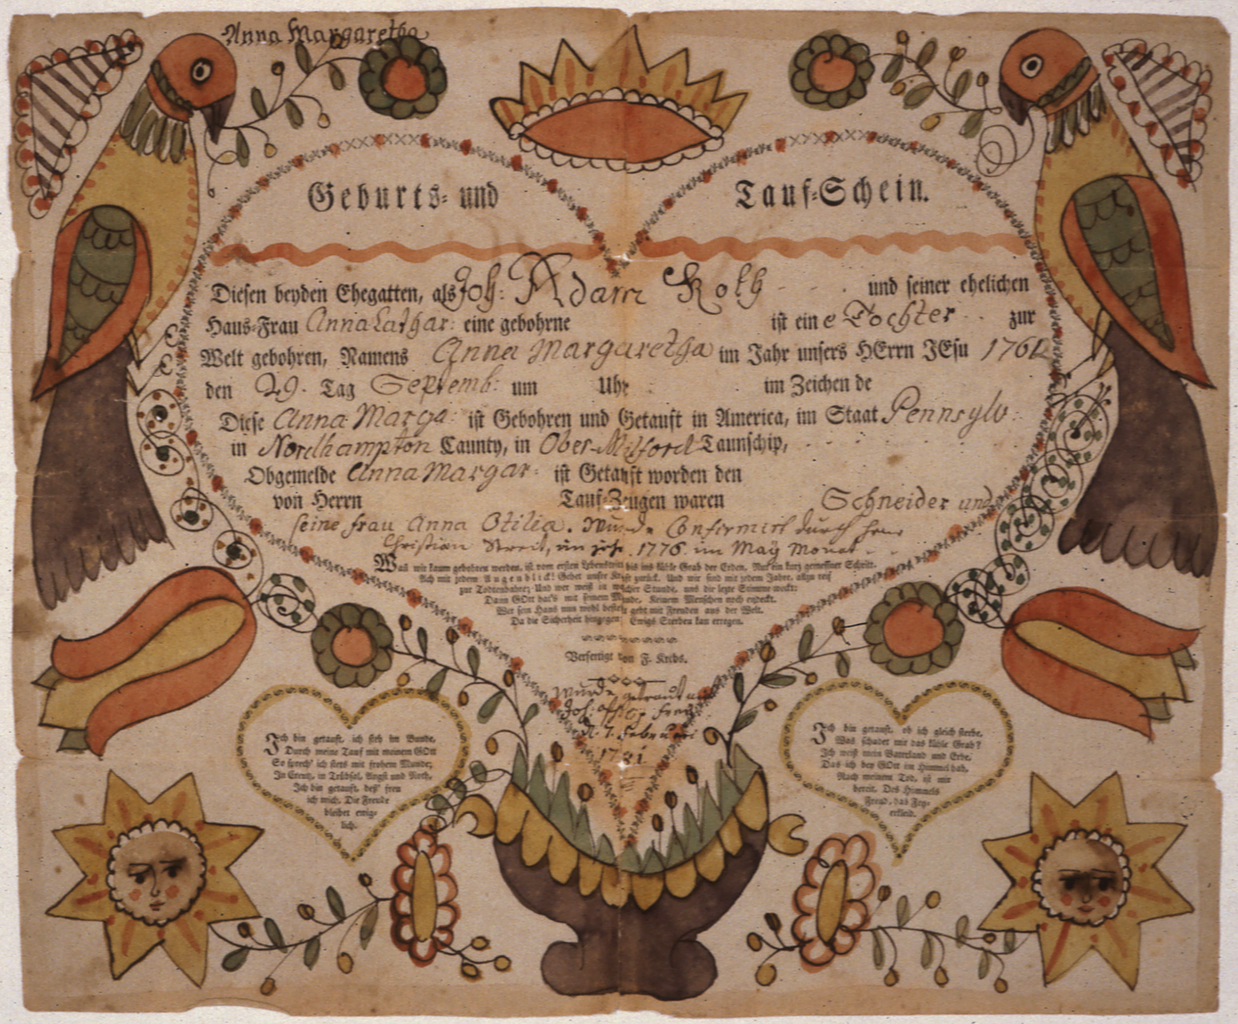 Anna Margaretha
Geburts- und Tauf-Schein.
Diesen beyden Ehegatten, als Joh: Adam Kolb und seiner ehelichen
Haus-Frau Anna Cathar: eine gebohrne ist eine Tochter zur
Welt gebohren, Namens Anna Margaretha im Jahr unsers HErrn JEsu 1761
den 29. Tag Septemb: um Uhr im Zeichen de
Diese Anna Marga: ist Gebohren und Getauft in America, im Staat Pennsylv:
in Nordhampton Caunty, in Ober-Milford Taunschip,
Obgemelde Anna Margar: ist Getauft worden den
von Herrn Tauf-Zeugen waren Schneider und
seine frau Anna Otilia. Wurde Confirmirt durch Herr
Christian Streit, im jahr 1776 im Maÿ Monat
Was wir kaum gebohren werden, ist vom ersten Lebenstritt bis ins kühle Grab der Erden, Nur ein kurz gemeßner Schritt.
Ach mit jedem Augenblick! Gehet unsre Kraft zurück. Und wir sind mit jedem Jahre, allzu reif
zur Todtenbahre; Und wer weiß in welcher Stunde, uns die lezte Stimme weckt:
Dann GOtt hat's mit seinem Munde, Keinem Menschen noch endeckt.
Wer sein Haus nun wohl bestellt, geht mit Freuden aus der Welt.
Da die Sicherheit hingegen Ewigs Sterben kan erregen.
Verfertigt von F. Krebs.
Wurde getraut
Joh.
d. 7. Februari
1781
Ich bin getauft, ich steh im Bunde,
Durch meine Tauf mit meinem GOtt
So sprech' ich stets mit frohem Munde;
In Creutz, in Trübsal, Angst und Noth,
Ich bin getauft, deß' freu
ich mich, Die Freude
bleibet ewig-
lich.
Ich bin getauft, ob ich gleich sterbe,
Was schadet mir das kühle Grab?
Ich weiß mein Vaterland und Erbe,
Das ich bey GOtt im Himmel hab,
Nach meinem Tod, ist mir
bereit, Des Himmels
Freud, das Fey-
erkleid.